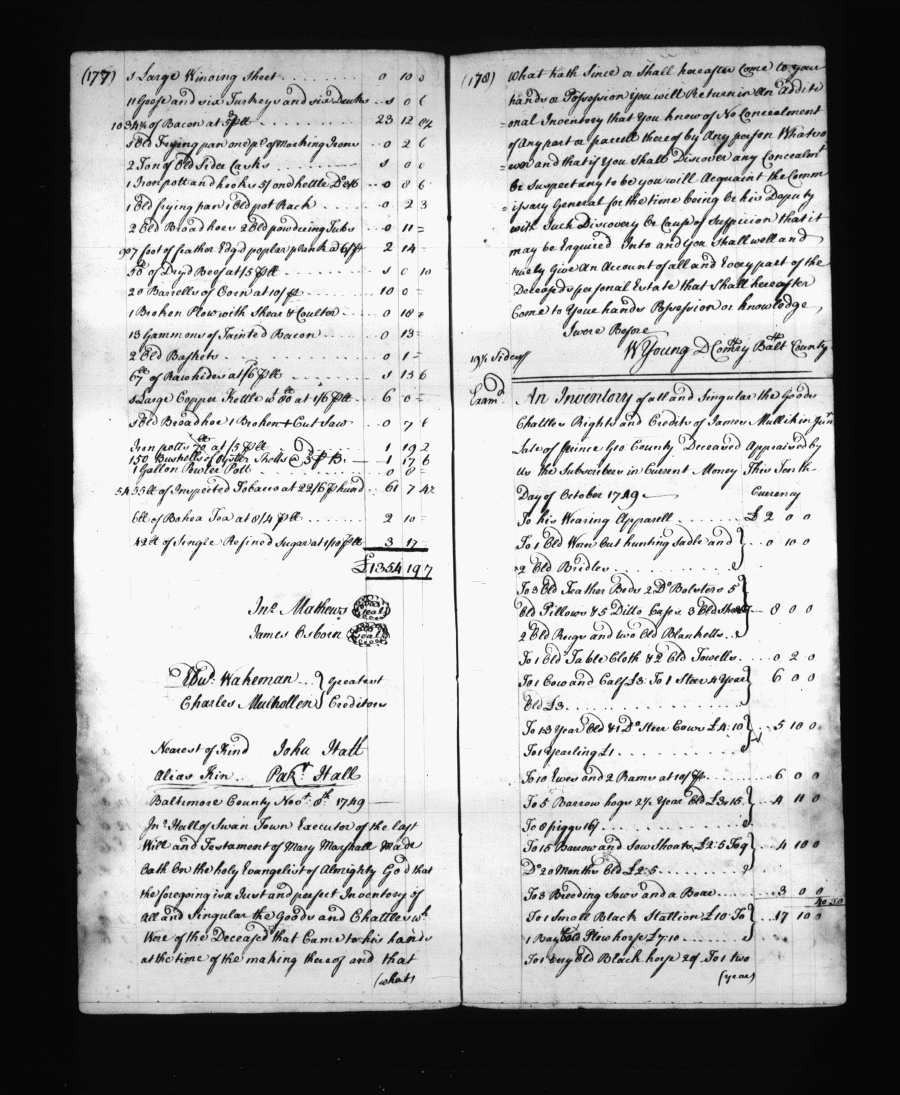 (177) 1 Large Winding Sheet . . . . 0 10 0
11 Geese and six Turkeys and six Ducks . . 1 0 6
1034¾ of Bacon at 5½ ℔ . . . 23 12
1 Old frying pan one pl of Marking Irons . . 0 2 6
2 Ton of Old Sider Casks . . . 1 0 0
1 Iron pott and hooks 5/ one kettle Do 3/6 . . 0 8 6
1 Old frying pan 1 Old pot Rack . . . 0 2 3
2 Old Broad hoes 2 Old powdering Tubs . . 0 11 =
907 foot of feather Edg'd poplar plank at 6/ . . 2 14
50lb of Dry'd Beef at 1/5 . . . 10
20 Barrells of Corn at 10/ . . . 10 0 =
1 Broken Plow with Shear & Coulter . . 0 10 =
13 Gammons of Tainted Bacon . . . 0 13 =
2 Old Baskets . . . 0 1 =
67lb of Rawhides at /6 . . . 1 13 6
1 Large Copper Kettle wt 80lb at 1/6 . . 6 0 =
1 Old Broad hoe 1 Broken + Cut Saw . . 0 7 6
Iron potts 70lb at /3 . . . 1 19 2
150 Bushells of Oyster Shells @ 3d p B. — 1 17 6
1 Gallon Pewter Pott . . . 0
5455lb of Inspected Tobacco at 22/6 p hund . . 61 7 4½
6lb of Bohea Tea at 8/4 . . . 2 10 =
42lb of Single Refined Sugar at 1/10 . . 3 17 =
£1354 19 7
Jno. Mathews Seal
James Osborn Seal
Edwd. Wakeman . . Greatest
Charles Mulhollen Creditors
Nearest of Kind John Hall
Alias Kin . . Park. Hall
Baltimore County Novr. 8th 1749
Jno. Hall of Swan Town Executor of the last
Will and Testament of Mary Marshall Made
Oath On the holy Evangelist of Almighty God that
the foregoing is a Just and perfect Inventory of
all and Singular the Goods and Chattles wh.
Were of the Deceased that Came to his hands
at the time of the making thereof and that
(what)
(178) What hath Since or Shall hereafter Come to your
hands or Possession you will Return in An Additi
onal Inventory that you know of No Concealment
of Any part or parcell thereof by Any person Whatso
=ever and that if You Shall Discover any Concealmt
Or Suspect any to be you will Acquaint the Comm
=issary General for the time being Or his Deputy
with Such Discovery Or Cause of Suspicion that it
may be Enquired Into and You Shall well and
truely Give An Account of all and Every part of the
Deceaseds personal Estate that Shall hereafter
Come to Your hands Possession or knowledge
Swore Before
W Young D Comry Balt County
19½ Sides
Examd An Inventory of all and Singular the Goods
Chattles Rights and Credits of James Mullikin Junr
Late of Prince Geo County Deceased Appraised by
Us the Subscribers in Current Money This Tenth
Day of October 1749 — Currency
To his Wearing Apparell . . . £ 2 0 0
To 1 Old Worn Out hunting Sadle and
2 Old Bridles . . . 0 10 0
To 3 Old Feather Beds 2 Do Bolsters 5
Old Pillows & 5 Ditto Cases 3 Old Sheets 8 0 0
2 Old Rugs and two Old Blanketts . .
To 1 Old Table Cloth & 2 Old Towells . . 0 2 0
To 1 Cow and Calf £3: To 1 Steer 4 Year 6 0 0
Old £3 . . .
To 1 3 Year Old & 1 Do Steer Cows £4:10 5 10 0
To 1 Yearling £1 . . .
To 10 Ewes and 2 Rams at 10/ . . 6 0 0
To 5 Barrow hogs 2½ Year Old £3:15 . . 4 11 0
To 8 piggs 16/ . . .
To 15 Barrow and Sow Shoats £2:5 To 9 4 10 0
Do 20 Months Old £2:5 . . .
To 3 Breeding Sows and a Boar . . 3 0 0
40 3 0
To 1 Small Black Stallion £10 To 17 10 0
1 Bay Old Plow horse £7:10 . . .
To 1 very Old Black horse 20/ To 1 two
(year)